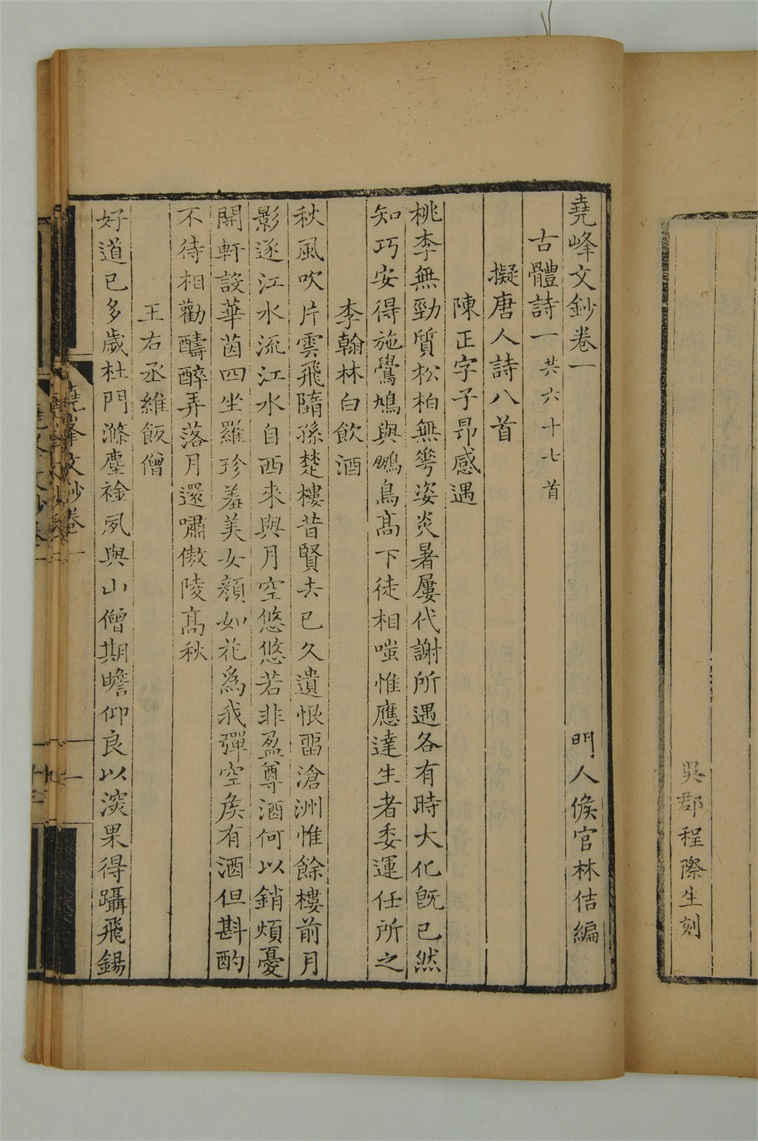 吳郡程際生刻
堯峰文鈔卷一
門人侯官林佶編
古體詩一共六十七首
擬唐人詩八首
陳正字子昂感遇
桃李無勁質松柏無萼姿炎暑屢代謝所遇各有時大化旣已然
知巧安得施鷽鳩與鵬鳥高下徒相嗤惟應達生者委運任所之
李翰林白飲酒
秋風吹片雲飛隋孫楚樓昔賢去已久遺恨畱滄洲惟餘樓前月
影逐江水流江水自西來與月空悠悠若非盈尊酒何以銷煩憂
開軒設華茵四坐羅珍羞美女顏如花爲我彈空矦有酒但斟酌
不待相勸醻醉弄落月還嘯傲陵高秋
王右丞維飯僧
好道已多歲杜門滌塵襟夙與山僧期瞻仰良以深果得躡飛錫
堯峰文鈔卷一